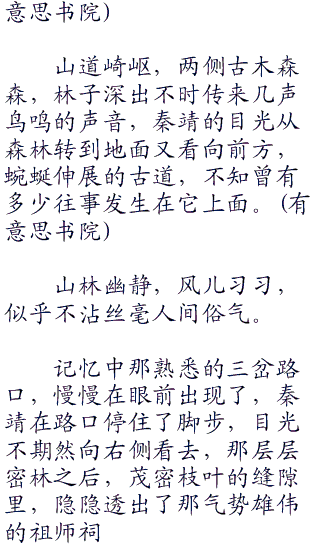 意思书院)
山道崎岖，两侧古木森
森，林子深出不时传来几声
鸟鸣的声音，秦靖的目光从
森林转到地面又看向前方，
蜿蜒伸展的古道，不知曾有
多少往事发生在它上面。(有
意思书院)
山林幽静，风儿习习，
似乎不沾丝毫人间俗气。
记忆中那熟悉的三岔路
口，慢慢在眼前出现了，秦
靖在路口停住了脚步，目光
不期然向右侧看去，那层层
密林之后，茂密枝叶的缝隙
里，隐隐透出了那气势雄伟
的祖师祠